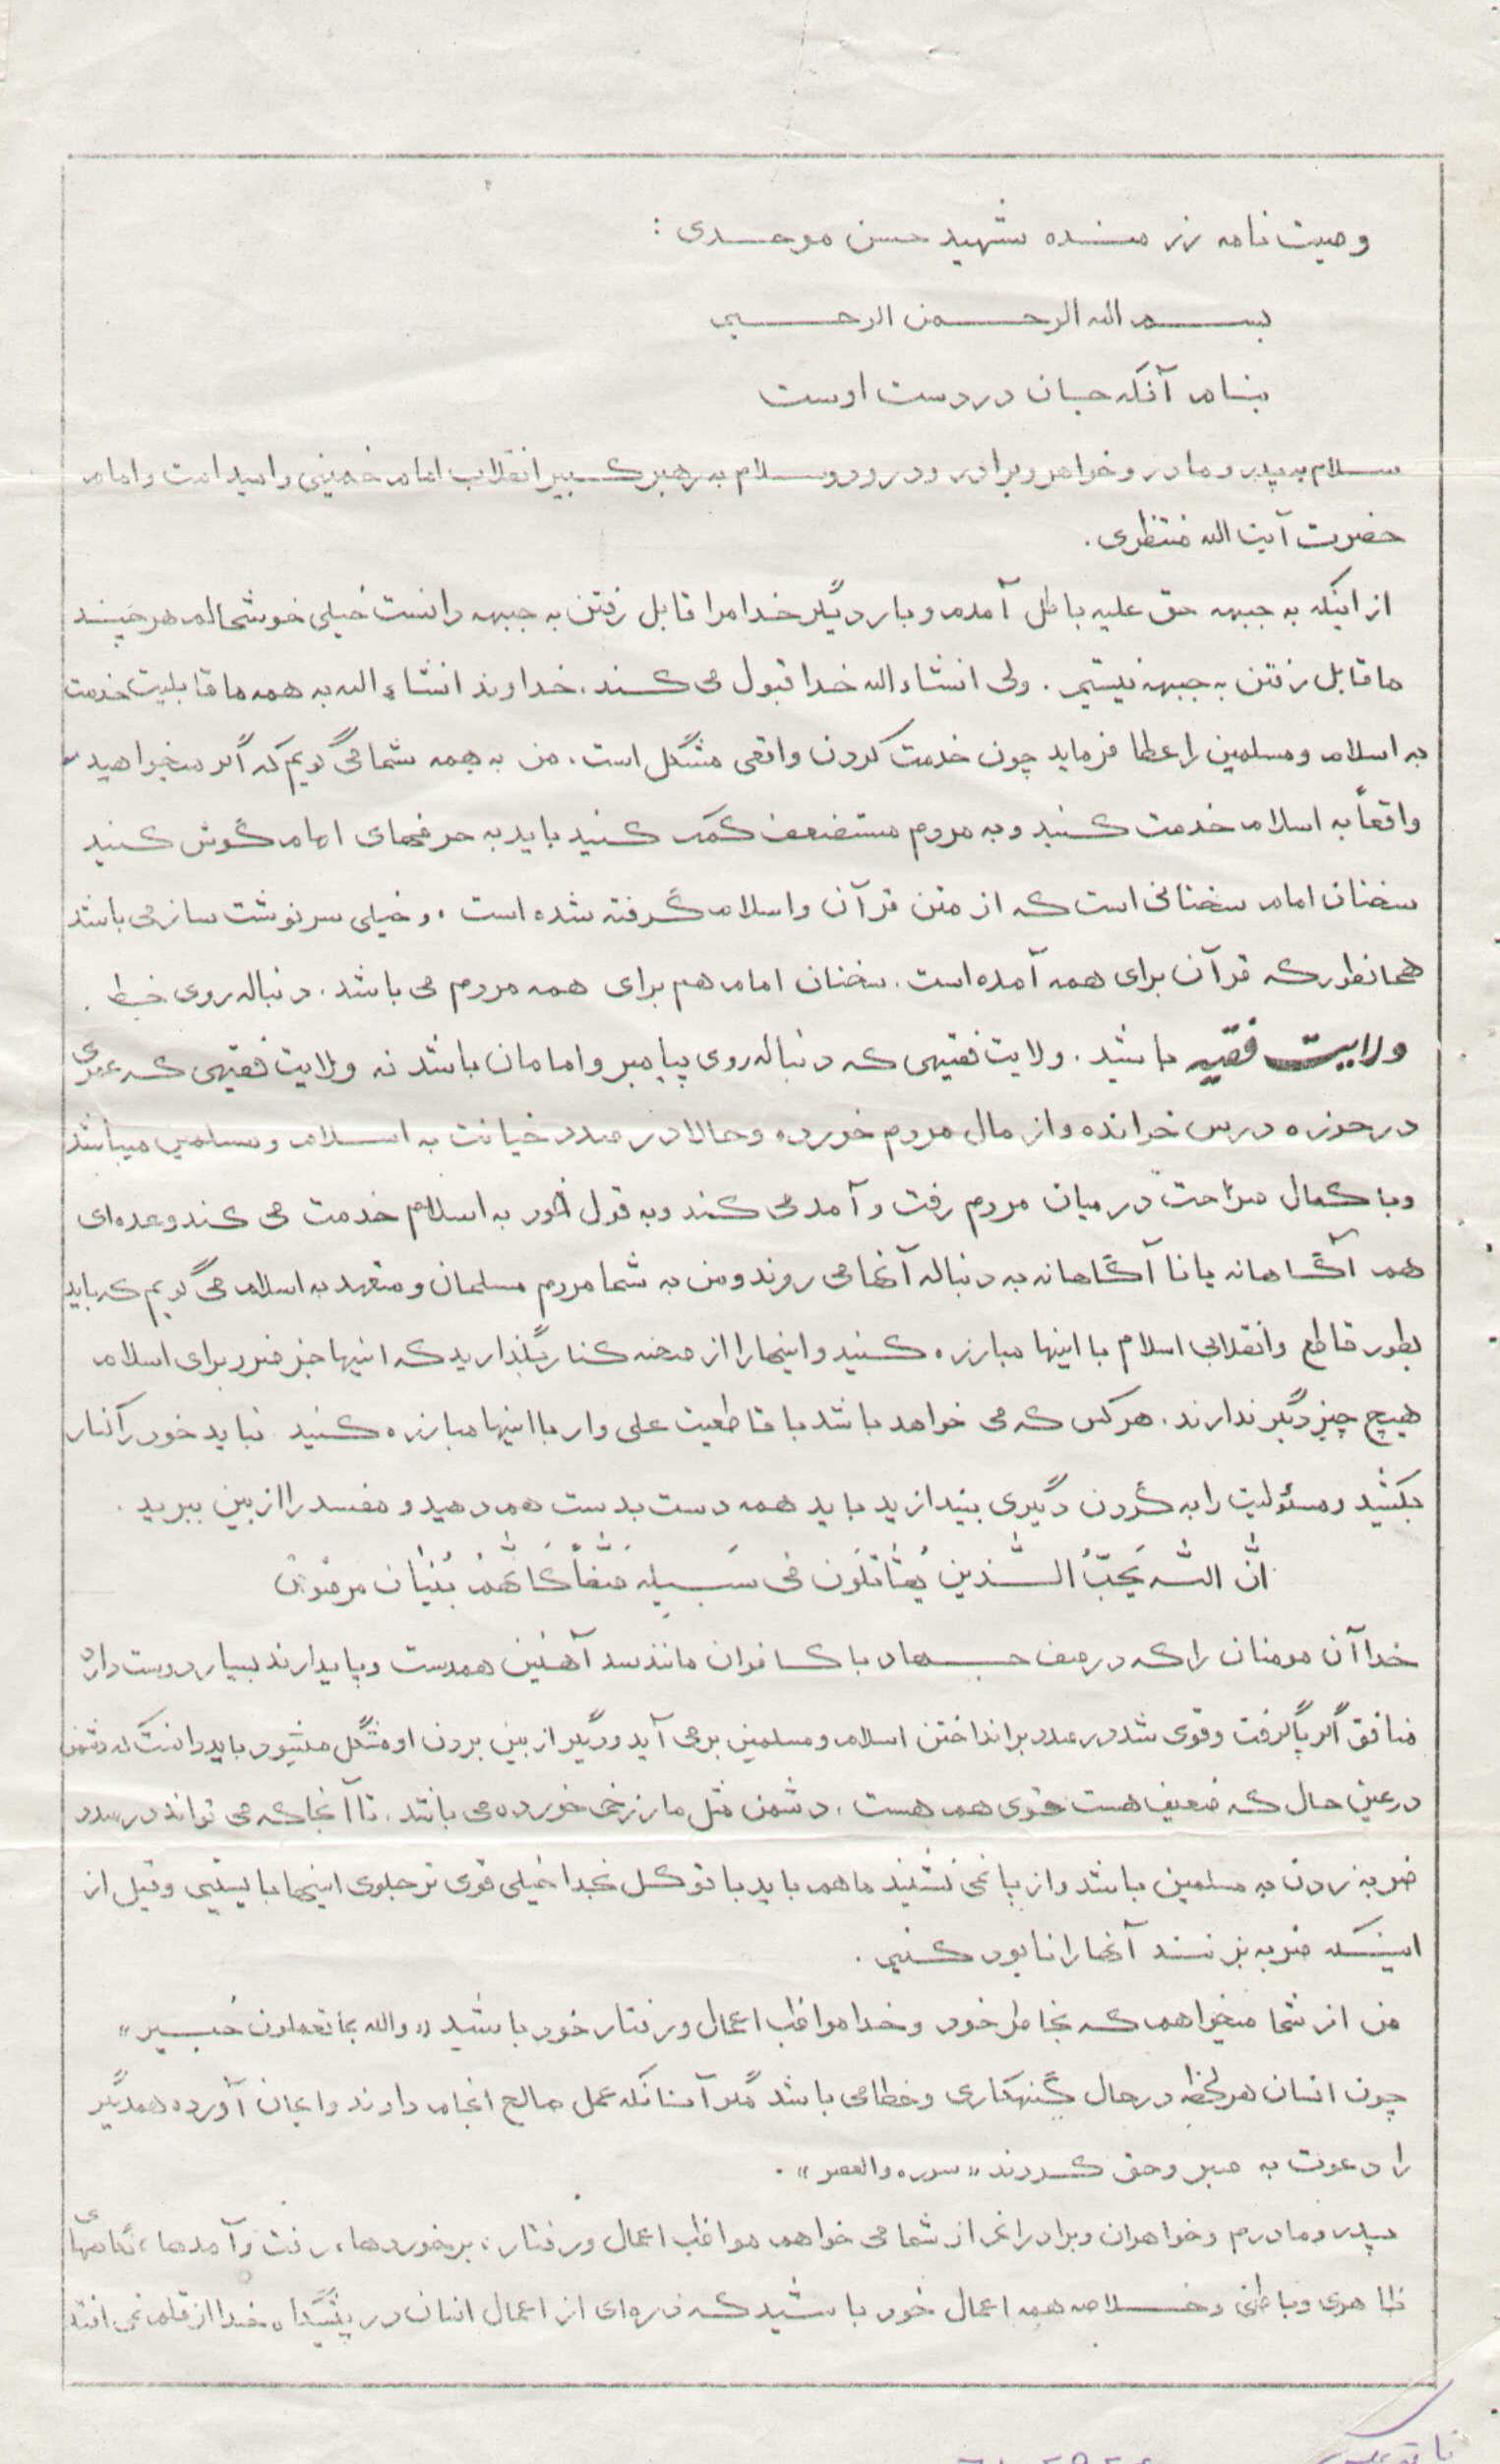 وصیت نامه رزمنده شهید حسن موحدی :
بسم الله الرحمن الرحیم
بنام آنکه جان در دست اوست
سلام به پدر و مادر و خواهر و برادر و درود و سلام به رهبر کبیر انقلاب امام خمینی و امید امت و امام
حضرت آیت الله منتظری .
از اینکه به جبهه حق علیه باطل آمدم و بار دیگر خدا مرا قابل رفتن به جبهه دانست خیلی خوشحالم هر چند
ما قابل رفتن به جبهه نیستیم . ولی انشاء الله خدا قبول می کند . خداوند انشاء الله به همه ما قابلیت خدمت
به اسلام و مسلمین را عطا فرماید چون خدمت کردن واقعی مشکل است . من به همه شما می گویم که اگر میخواهید
واقعاً به اسلام خدمت کنید و به مردم مستضعف کمک کنید باید به حرفهای امام گوش کنید
سخنان امام سخنانی است که از متن قرآن و اسلام گرفته شده است . و خیلی سرنوشت ساز می باشد
همانطور که قرآن برای همه آمده است . سخنان امام هم برای همه مردم می باشد . دنباله روی خط
ولایت فقیه باشید . ولایت فقیهی که دنباله روی پیامبر و امامان باشد نه ولایت فقیهی که عمری
در حوزه درس خوانده و از مال مردم خورده و حالا در صدد خیانت به اسلام و مسلمین میباشد
و با کمال صراحت در میان مردم رفت و آمد می کند و به قول خود به اسلام خدمت می کند و عده ای
هم آگاهانه یا نا آگاهانه به دنباله آنها می روند و من به شما مردم مسلمان و متعهد به اسلام می گویم که باید
بطور قاطع و انقلابی اسلام با اینها مبارزه کنید و اینها را از صحنه کنار بگذارید که اینها جز ضرر برای اسلام
هیچ چیز دیگر ندارند . هر کس که می خواهد باشد با قاطعیت علی وار با اینها مبارزه کنید نباید خود را کنار
بکشید و مسئولیت را به گردن دیگری بیندازید باید همه دست بدست هم دهید و مفسد را از بین ببرید .
انَّ اللّه یُحِبُّ الَّذین یُقاتِلَون فی سَبیلِه صَفاً کَاَنَّهُم بُنیان مرصوص
خدا آن مومنان را که در صف جهاد با کافران مانند سد آهنین همدست و پایدارند بسیار دوست دارد
منافق اگر پا گرفت و قوی شد در صدد برانداختن اسلام و مسلمین برمی آید و دیگر از بین بردن او مشکل میشود باید دانست که دشمن
در عین حال که ضعیف هست قوی هم هست . دشمن مثل مار زخمی خورده می باشد . تا آنجا که می تواند در صدد
ضربه زدن به مسلمین باشد و از پا نمی نشیند ما هم باید با توکل بخدا خیلی قوی تر جلوی اینها بایستیم و قبل از
اینکه ضربه بزنند آنها را نابود کنیم .
من از شما میخواهم که بخاطر خود و خدا مواظب اعمال و رفتار خود باشید « والله بما تعملون خَبیر »
چون انسان هر لحظه در حال گنهکاری و خطا می باشد مگر آنانکه عمل صالح انجام دادند و ایمان آورده همدیگر
را دعوت به صبر و حق کردند « سوره والعصر » .
پدر و مادرم و خواهران و برادرانم از شما می خواهم مواظب اعمال و رفتار ، برخوردها ، رفت و آمدها ، نگاههای
ظاهری و باطنی و خلاصه همه اعمال خود باشید که ذره ای از اعمال انسان در پیشگاه خدا از قلم نمی افتد